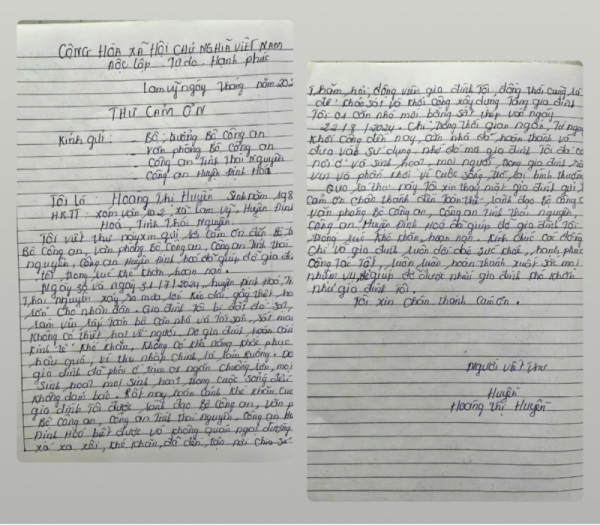 CỘNG HÒA XÃ HỘI CHỦ NGHĨA VIỆT NAM
Độc lập - Tự do - Hạnh phúc
Lam vỹ ngày tháng năm 202
THƯ CẢM ƠN
Kính gửi: - Bộ trưởng Bộ Công an
- Văn phòng Bộ Công an
- Công an Tỉnh Thái Nguyên
- Công an Huyện Định Hoá
Tôi là: Hoàng Thị Huyền Sinh năm 198
HKTT: xóm Văn La 2, xã Lam Vỹ - Huyện Định
Hoá - Tỉnh Thái Nguyên.
Tôi viết thư này xin gửi lời cảm ơn đến Bộ
Bộ Công an, Văn phòng Bộ Công an, Công an Tỉnh Thái
nguyên, Công an Huyện Định hoá đã giúp đỡ gia đì
tôi trong lúc khó khăn hoạn nạn.
Ngày 30 và ngày 31/7/2024, huyện Định Hoá, T
Thái nguyên xảy ra mưa lớn kéo dài, gây thiệt hạ
lớn cho nhân dân. Gia đình tôi bị đất đá sạt,
làm vùi lấp toàn bộ căn nhà và tài sản, rất may
không có thiệt hại về người. Do gia đình hoàn cản
kinh tế khó khăn, không có khả năng khắc phục
hậu quả, vì thu nhập chính là làm ruộng. Do
gia đình đã phải ở tạm ở ngăn chuồng lợn, mọi
sinh hoạt mọi sinh hoạt trong cuộc sống đều
không đảm bảo. Rất may hoàn cảnh khó khăn củ
gia đình Tôi được lãnh đạo Bộ Công an, Văn p
Bộ Công an, Công an Tỉnh Thái nguyên, Công an H
Định Hoá biết được và không quản ngại đường
xá xa xôi, khó khăn, đã đến tận nơi chia sẻ
Thăm, hỏi, động viên gia đình Tôi, đồng thời cũng là
để khảo sát và khởi công xây dựng tặng gia đình
Tôi 01 căn nhà mới bằng sắt thép vào ngày
22/8/2024. Chỉ trong thời gian ngắn, từ ngày
khởi công đến nay, căn nhà đã hoàn thành và
đưa vào sử dụng. nhờ đó mà gia đình Tôi đã có
nơi ở và sinh hoạt, mọi người trong gia đình rấ
vui và phấn khởi vì cuộc sống trở lại bình thường.
Qua lá thư này Tôi xin thay mặt gia đình gửi l
cảm ơn chân thành đến toàn thể lãnh đạo Bộ công a
văn phòng Bộ Công an, Công an Tỉnh Thái nguyên,
Công an Huyện Định Hoá đã giúp đỡ gia đình Tôi
trong lúc khó khăn, hoạn nạn. Kính chúc các đồng
chí và gia đình luôn dồi dào sức khoẻ, hạnh phúc
công tác tốt, luôn luôn hoàn thành xuất sắc mọi
nhiệm vụ, giúp đỡ được nhiều gia đình khó khăn
như gia đình tôi.
Tôi xin chân thành cảm ơn.
Người viết thư
Huyền
Hoàng Thị Huyền